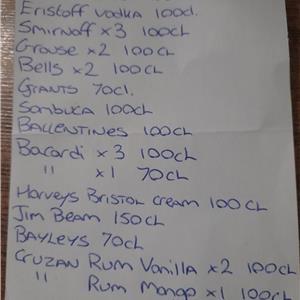 Eristoff vodka 100cl.
Smirnoff x 3 100cl
Grouse x 2 100cl
Bells x 2 100cl
Grants 70cl.
Sambuca 100cl
BALLENTINES 100cl
Bacardi x 3 100cl
" x 1 70cl
Harveys Bristol Cream 100cl
Jim Beam 150cl
BAYLEYS 70cl
CRUZAN Rum Vanilla x 2 100cl
" Rum Mango x 1 100cl